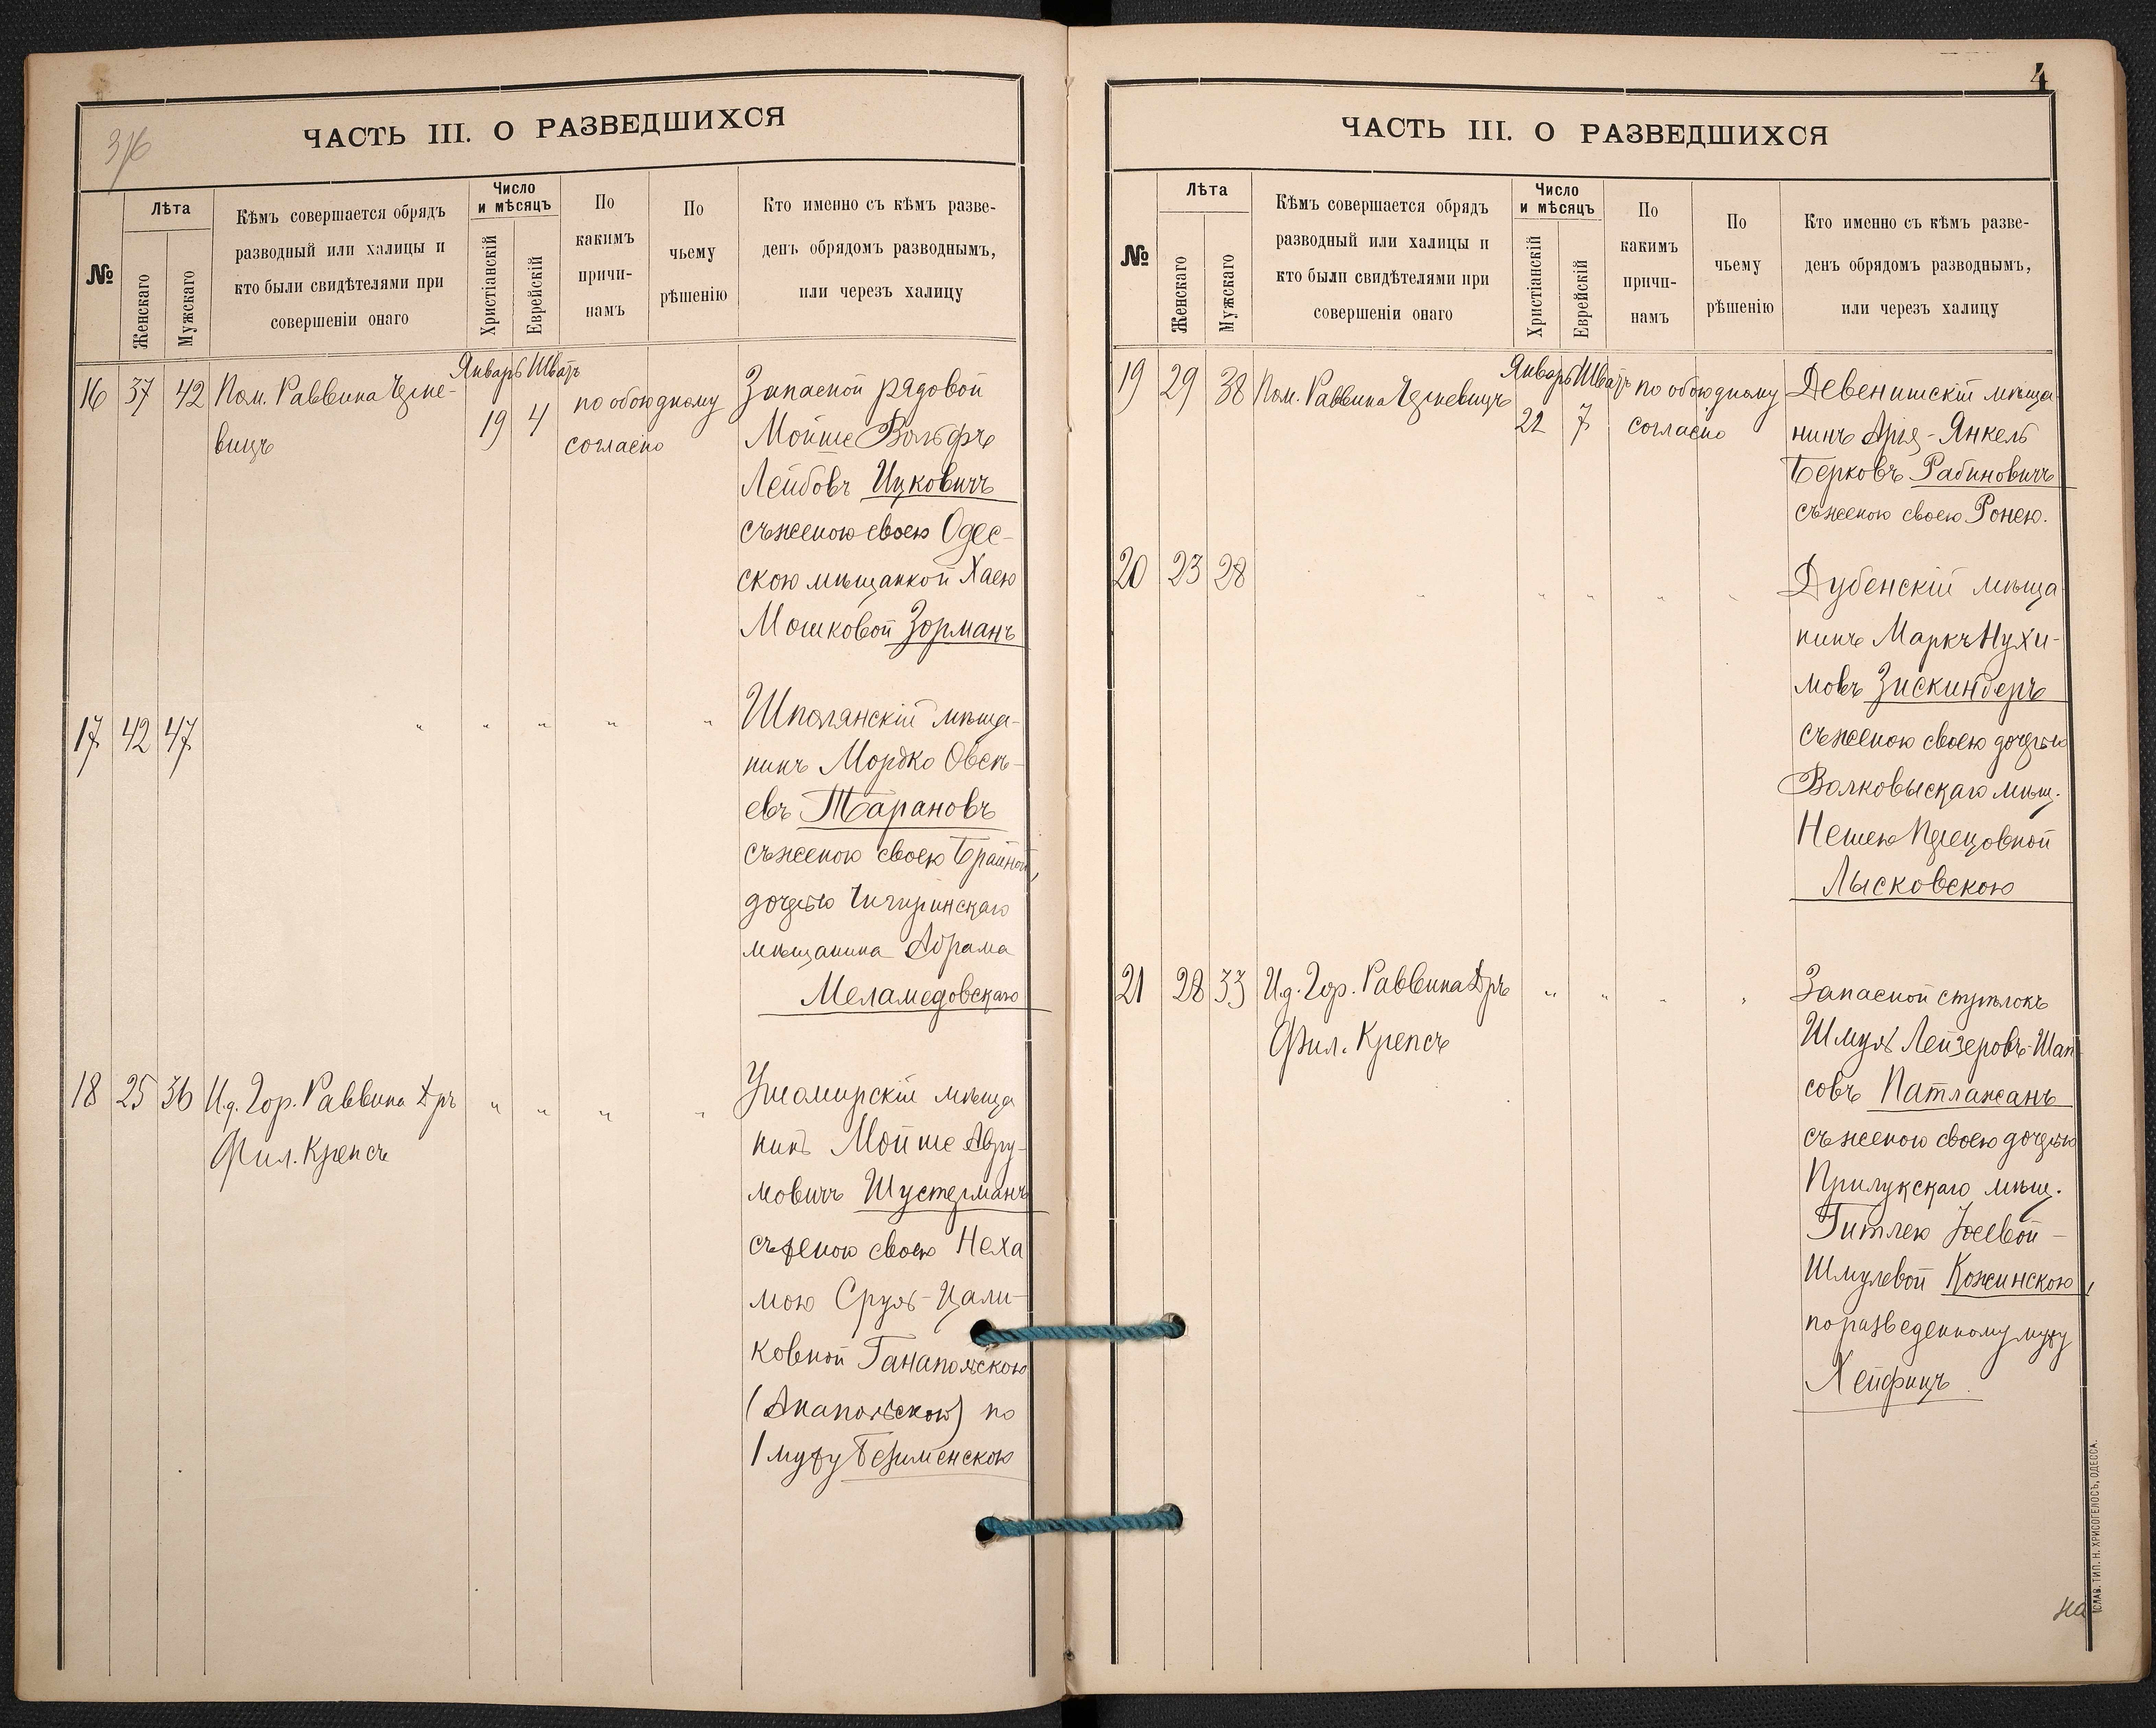 3/6
ЧАСТЬ III. О РАЗВЕДШИХСЯ
№
Лѣта
Женскаго
Мужскаго
Кѣмъ совершается обрядъ
разводный или халицы и
кто были свидѣтелями при
совершеніи онаго
Число
и мѣсяцъ
Христіанскій
Еврейскій
По
какимъ
причи-
намъ
По
чьему
рѣшенію
Кто именно съ кѣмъ разве-
денъ обрядомъ разводнымъ,
или черезъ халицу
Январь Шватъ
16 37 42 Пом. Раввина
вицъ
19 4
по обоюдному
согласію
Запасной рядовой
Мойше Вольфъ
Лейбовъ Ицковичъ
съ женою своею Одес-
скою мѣщанкой Хаею
Мошковой Зорманъ
17 42 47 " " " " "
Шполянскій мѣща-
нинъ Мордко Овсѣ-
евъ Тарановъ
съ женою своею Брайной,
дочерью Чигиринскаго
мѣщанина Абрама
Меламедовскаго
18 25 36 И.д. Гор. Раввина Дръ
Фил. Крепсъ
" " " "
Ушомирскій мѣща
нинъ Мойше Авру-
мовичъ Шустерманъ
съ женою своею Неха
мою Сруль-Цали-
ковной Ганапольскою
(Анапольскою) по
1 мужу Безименскою
4
ЧАСТЬ III. О РАЗВЕДШИХСЯ
№
Лѣта
Женскаго
Мужскаго
Кѣмъ совершается обрядъ
разводный или халицы и
кто были свидѣтелями при
совершеніи онаго
Число
и мѣсяцъ
Христіанскій
Еврейскій
По
какимъ
причи-
намъ
По
чьему
рѣшенію
Кто именно съ кѣмъ разве-
денъ обрядомъ разводнымъ,
или черезъ халицу
Январь Шватъ
19 29 38 Пом. Раввина
22 7
по обоюдному
согласію
Девенишскій мѣща
нинъ Арія-Янкель
Берковъ Рабиновичъ
съ женою своею Ронею.
20 23 28 " " " " "
Дубенскій мѣща
нинъ Маркъ Нухи-
мовъ Зискиндеръ
съ женою своею дочерью
Волковыскаго мѣщ.
Нешею
Лысковскою
21 28 33 И.д. Гор. Раввина Дръ
Фил. Крепсъ
" " " "
Запасной стрѣлокъ
Шмуль Лейзеровъ-Шап
совъ Патлажанъ
съ женою своею дочерью
Прилукскаго мѣщ.
Гитлею Іосевой-
Шмулевой Кожинскою,
по разведенному мужу
Хейфицъ
СЛАВ. ТИП. Н. ХРИСОГЕЛОСЪ, ОДЕССА.